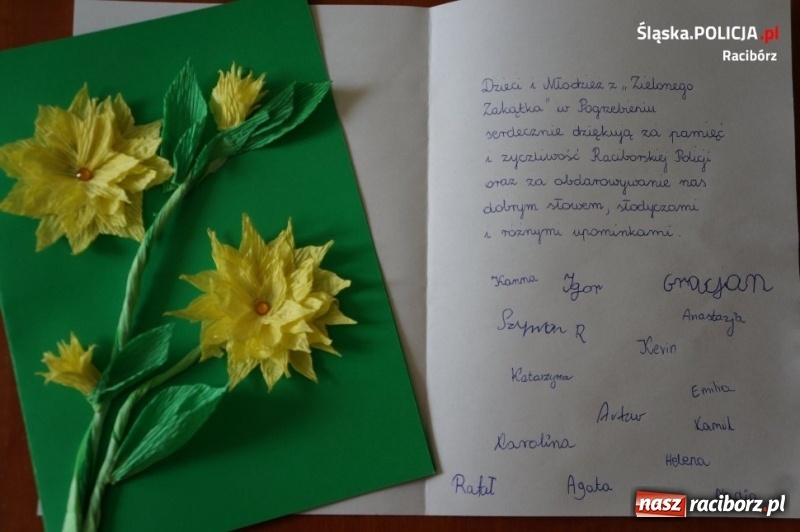 Śląska.POLICJA.pl
Racibórz
Dzieci i Młodzież z „Zielonego
Zakątka" w Pogrzebieniu
serdecznie dziękują za pamięć
i życzliwość Raciborskiej Policji
oraz za obdarowywanie nas
dobrym słowem, słodyczami
i różnymi upominkami.
Hanna Igor Gracjan
Szymon R Anastazja
Kevin
Katarzyna
Emilia
Artur Kamil
Karolina
Helena
Rafał Agata
nasz raciborz.pl